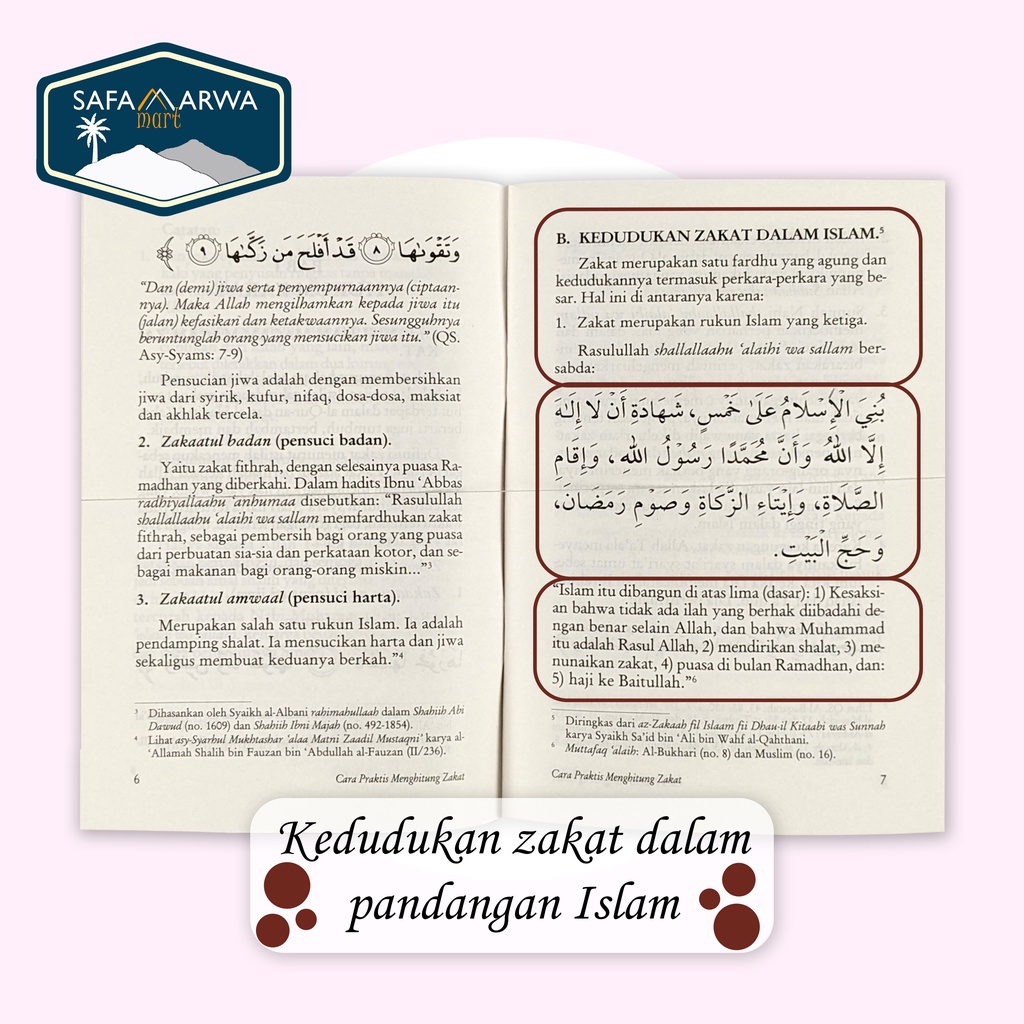 SAFA MARWA
mart
وَتَقْوَىٰهَا ٨ قَدْ أَفْلَحَ مَن زَكَّىٰهَا ٩
"Dan (demi) jiwa serta penyempurnaannya (ciptaan-
nya). Maka Allah mengilhamkan kepada jiwa itu
(jalan) kefasikan dan ketakwaannya. Sesungguhnya
beruntunglah orang yang mensucikan jiwa itu." (QS.
Asy-Syams: 7-9)
Pensucian jiwa adalah dengan membersihkan
jiwa dari syirik, kufur, nifaq, dosa-dosa, maksiat
dan akhlak tercela.
2. Zakaatul badan (pensuci badan).
Yaitu zakat fithrah, dengan selesainya puasa Ra-
madhan yang diberkahi. Dalam hadits Ibnu 'Abbas
radhiyallaahu 'anhumaa disebutkan: "Rasulullah
shallallaahu 'alaihi wa sallam memfardhukan zakat
fithrah, sebagai pembersih bagi orang yang puasa
dari perbuatan sia-sia dan perkataan kotor, dan se-
bagai makanan bagi orang-orang miskin..."3
3. Zakaatul amwaal (pensuci harta).
Merupakan salah satu rukun Islam. Ia adalah
pendamping shalat. Ia mensucikan harta dan jiwa
sekaligus membuat keduanya berkah."4
3 Dihasankan oleh Syaikh al-Albani rahimahullaah dalam Shahiih Abi
Dawud (no. 1609) dan Shahiih Ibni Majah (no. 492-1854).
4 Lihat asy-Syarhul Mukhtashar 'alaa Matni Zaadil Mustaqni' karya al-
'Allamah Shalih bin Fauzan bin 'Abdullah al-Fauzan (II/236).
6 Cara Praktis Menghitung Zakat
B. KEDUDUKAN ZAKAT DALAM ISLAM.5
Zakat merupakan satu fardhu yang agung dan
kedudukannya termasuk perkara-perkara yang be-
sar. Hal ini di antaranya karena:
1. Zakat merupakan rukun Islam yang ketiga.
Rasulullah shallallaahu 'alaihi wa sallam ber-
sabda:
بُنِيَ الْإِسْلَامُ عَلَىٰ خَمْسٍ، شَهَادَةِ أَنْ لَا إِلَـٰهَ
إِلَّا اللهُ وَأَنَّ مُحَمَّدًا رَسُوْلُ اللهِ، وَإِقَامِ
الصَّلَاةِ، وَإِيْتَاءِ الزَّكَاةِ وَصَوْمِ رَمَضَانَ،
وَحَجِّ الْبَيْتِ.
"Islam itu dibangun di atas lima (dasar): 1) Kesaksi-
an bahwa tidak ada ilah yang berhak diibadahi de-
ngan benar selain Allah, dan bahwa Muhammad
itu adalah Rasul Allah, 2) mendirikan shalat, 3) me-
nunaikan zakat, 4) puasa di bulan Ramadhan, dan:
5) haji ke Baitullah."6
5 Diringkas dari az-Zakaah fil Islaam fii Dhau-il Kitaabi was Sunnah
karya Syaikh Sa'id bin 'Ali bin Wahf al-Qahthani.
6 Muttafaq 'alaih: Al-Bukhari (no. 8) dan Muslim (no. 16).
Cara Praktis Menghitung Zakat 7
Kedudukan zakat dalam
pandangan Islam